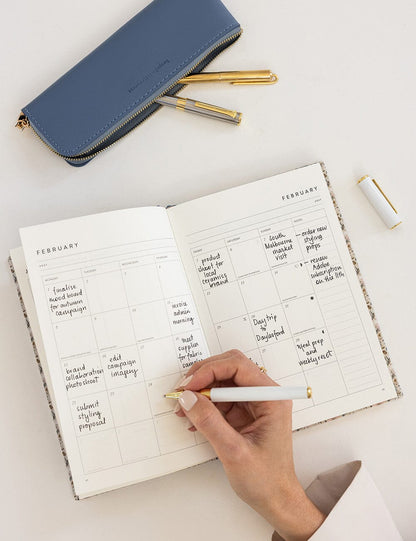 FEBRUARY
MONDAY
TUESDAY
WEDNESDAY
THURSDAY
finalise
mood board
for autumn
campaign
xero
admin
morning
meet
supplier
for fabric
brand
collaboration
photoshoot
edit
campaign
imagery
submit
styling
proposal
FEBRUARY
FRIDAY
SATURDAY
SUNDAY
NOTES
product
shoot for
local
ceramics
brand
South
Melbourne
market
visit
— order new
styling
props
— renew
Adobe
subscription
on the 18th
Day trip
to
Daylesford
Meal prep
and
weekly reset